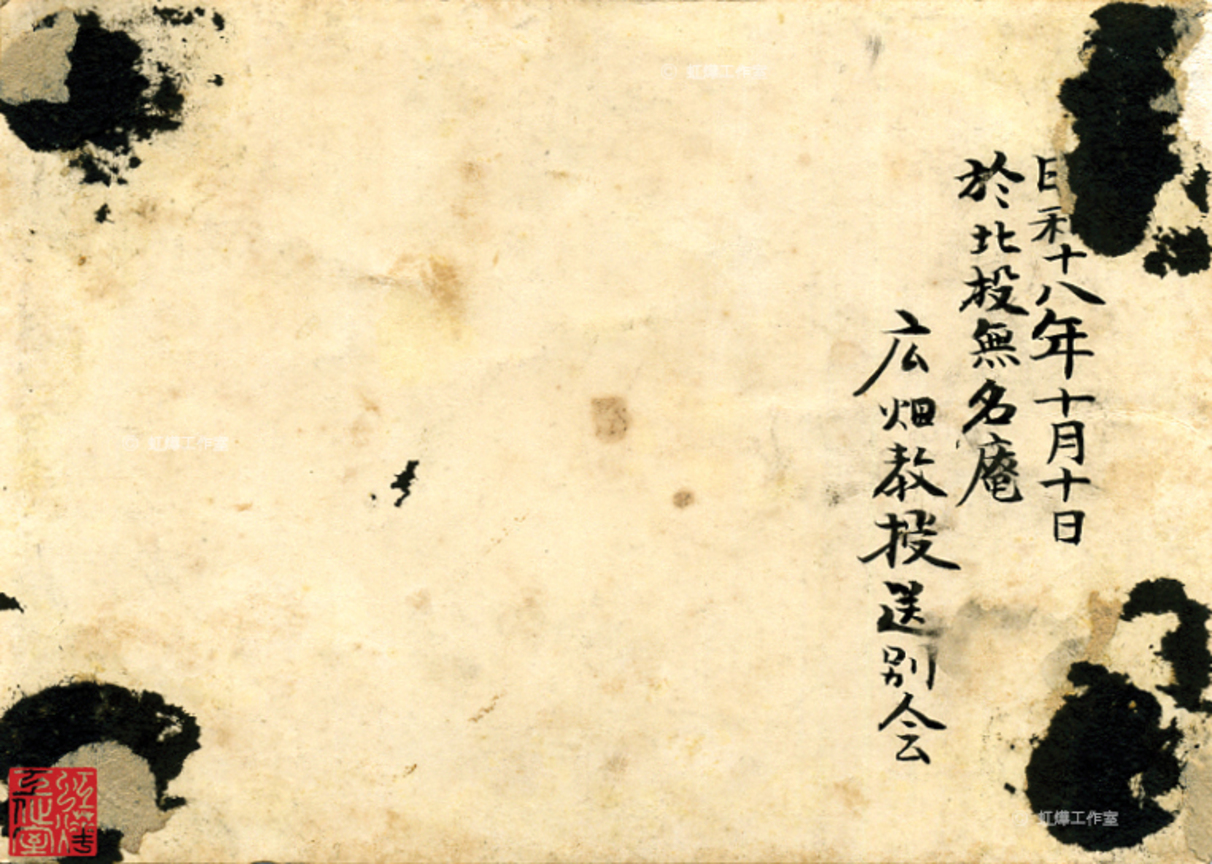 昭和十八年十月十日
於北投無名庵
広畑教授送別会
© 虹燁工作室
© 虹燁工作室
© 虹燁工作室
虹燁工作室